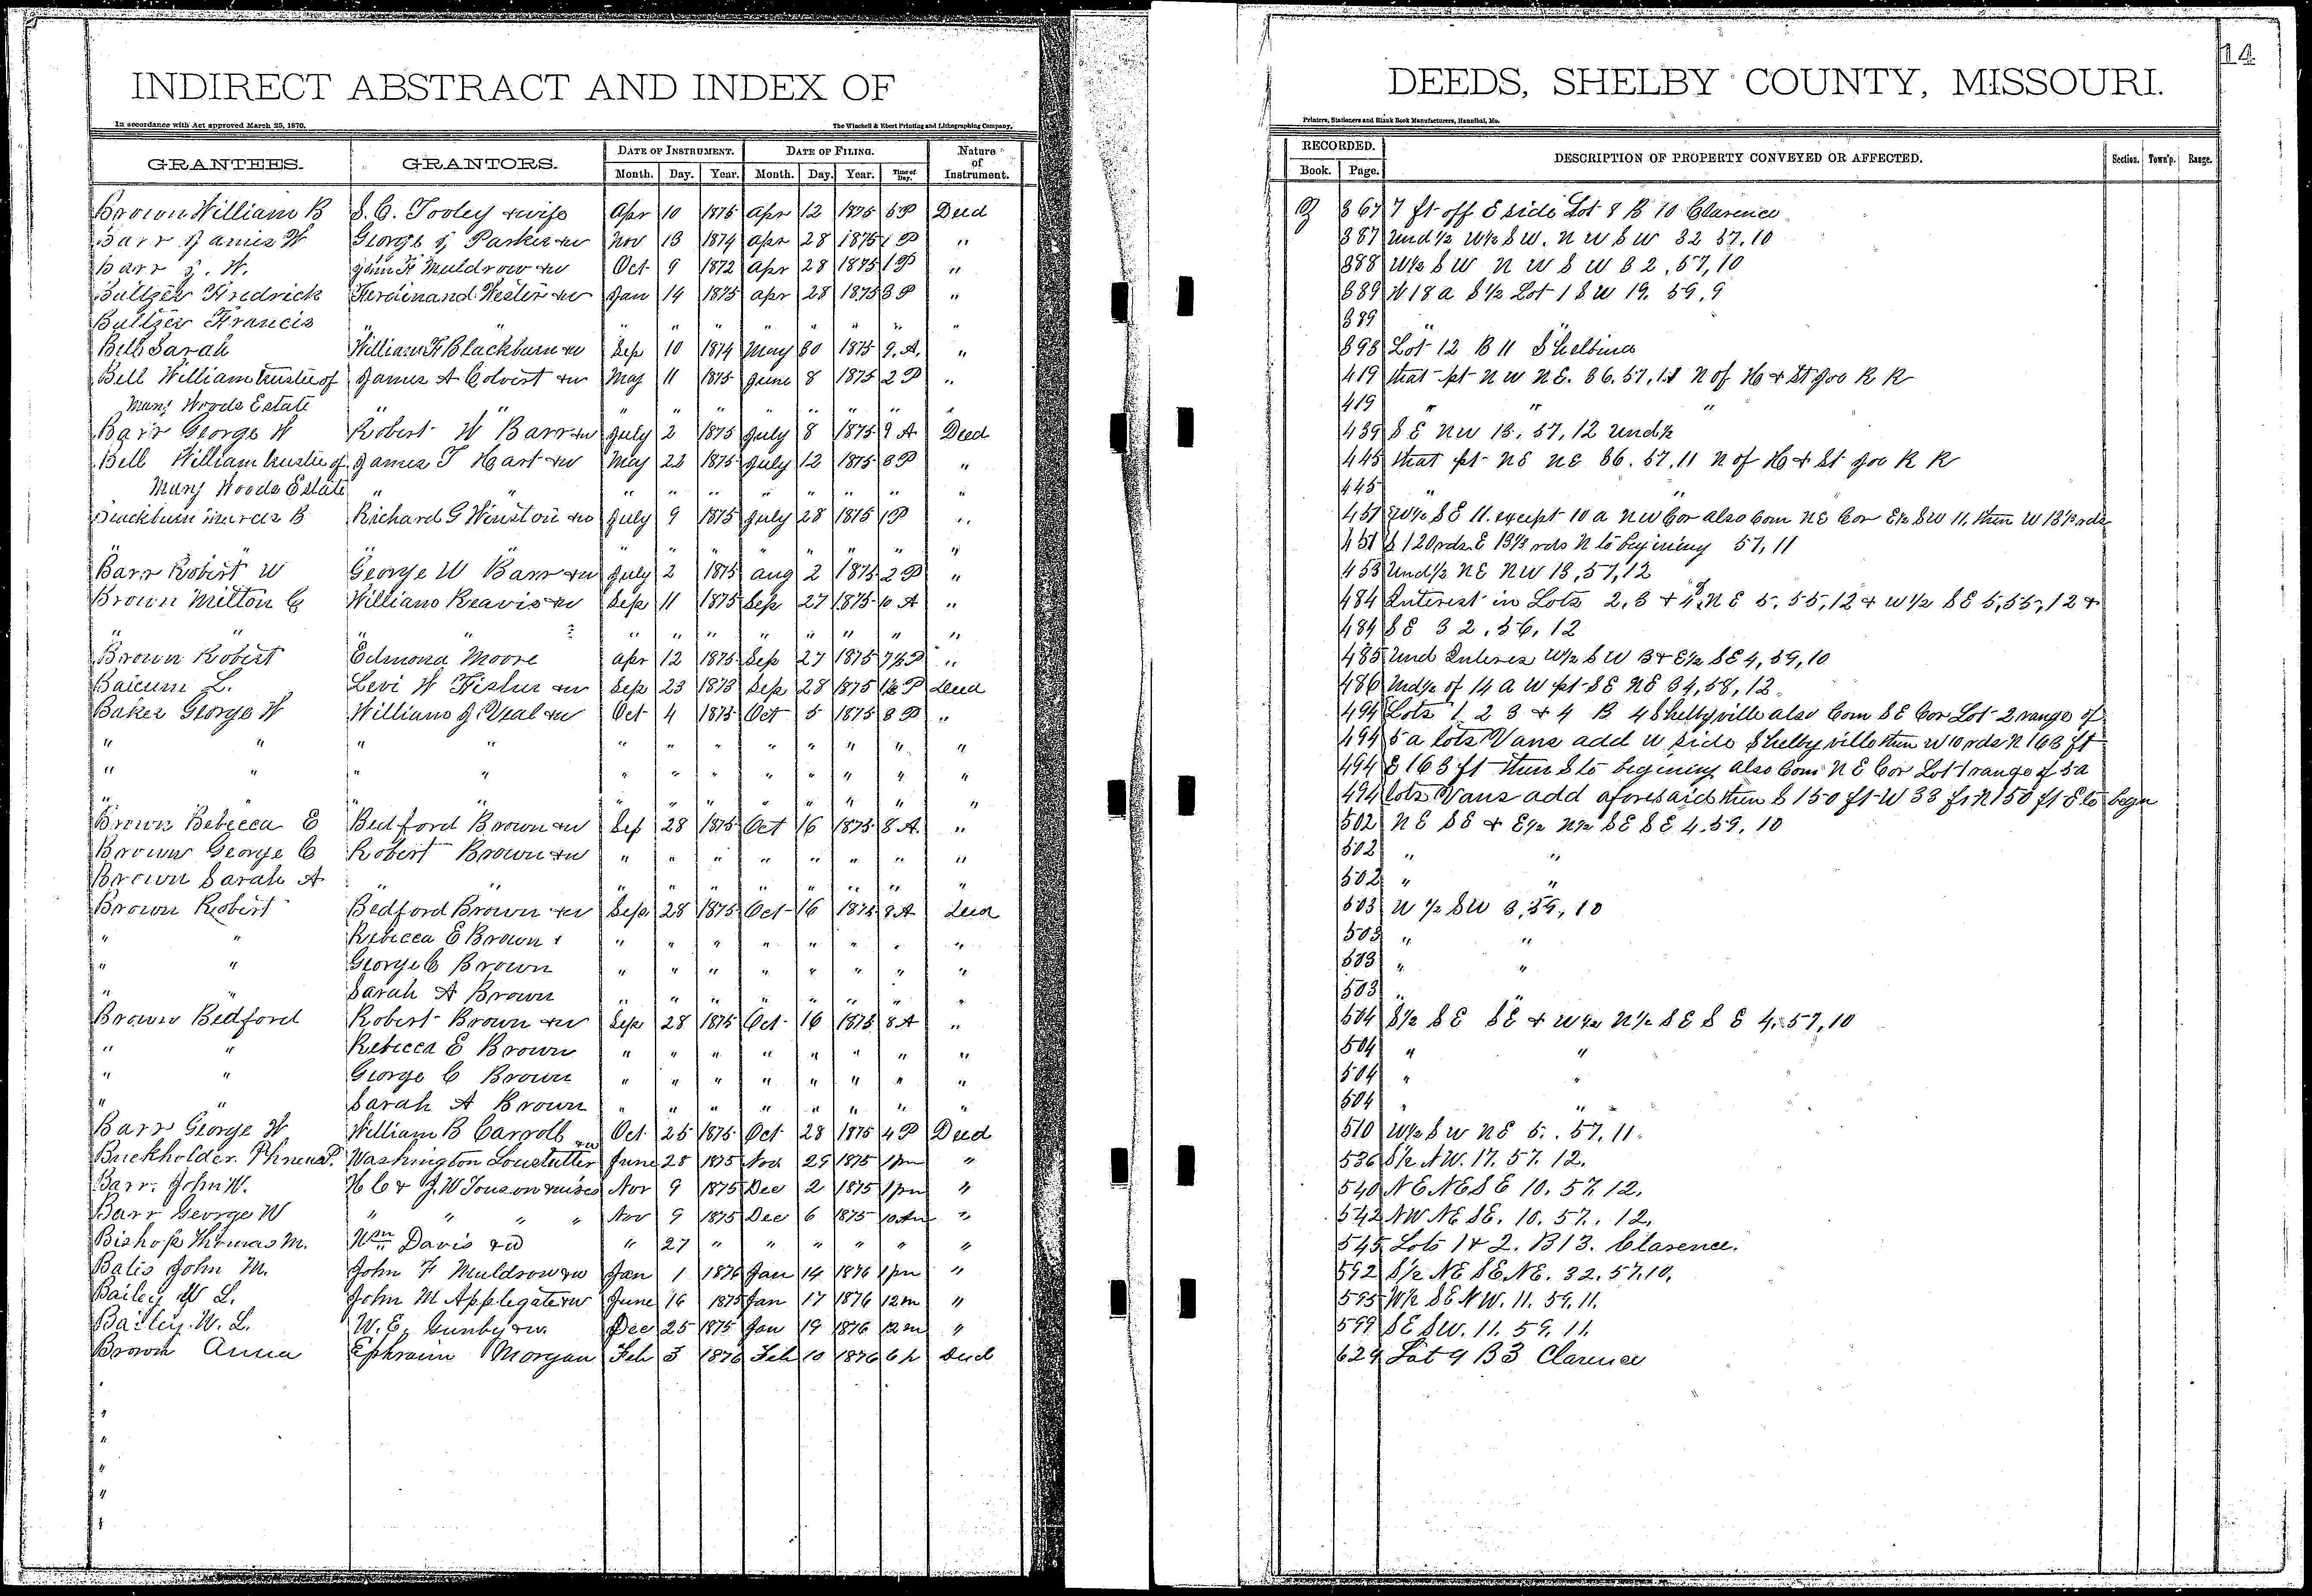 14
INDIRECT ABSTRACT AND INDEX OF DEEDS, SHELBY COUNTY, MISSOURI.
In accordance with Act approved March 25, 1870. The Winchell & Ebert Printing and Lithographing Company, Printers, Stationers and Blank Book Manufacturers, Hannibal, Mo.
GRANTEES. GRANTORS. DATE OF INSTRUMENT. DATE OF FILING. Nature of Instrument. RECORDED. DESCRIPTION OF PROPERTY CONVEYED OR AFFECTED. Section. Town'p. Range.
Month. Day. Year. Month. Day. Year. Time of Day. Book. Page.
Brown William B S. C. Tooley & wife Apr 10 1875 Apr 12 1875 5 P Deed 367 7 ft off E side Lot 8 B 10 Clarence
Barr James W George J Parker & w Nov 13 1874 Apr 28 1875 1 P " 387 Und ½ W½ S W. N W S W 32 57. 10
Barr J. W. John F Muldrow & w Oct 9 1872 Apr 28 1875 1 P " 388 W½ S W N W S W 32, 57, 10
Bultzer Fredrick Ferdinand Wester & w Jan 14 1875 Apr 28 1875 3 P " 389 N 18 a S ½ Lot 1 S W 19. 59, 9
Bultzer Francis " " " " " " " " " " 389
Bell Sarah William F Blackburn & w Sep 10 1874 May 30 1875 9. A. " 398 Lot 12 B 11 Shelbina
Bell William trustee of James A Colvert & w May 11 1875 June 8 1875 2 P " 419 that pt N W N E. 36. 57, 11 N of H & St Joo R R
Mary Woods Estate " " " " " " " " " " 419 " " "
Barr George W Robert W Barr & w July 2 1875 July 8 1875 9 A Deed 439 S E NW 13, 57, 12 Und ½
Bell William trustee of James T Hart & w May 22 1875 July 12 1875 3 P " 445 that pt NE NE 36. 57, 11 N of H & St Joo R R
Mary Woods Estate " " " " " " " " " " 445 " "
Blackburn B Richard G Winston & w July 9 1875 July 28 1875 1 P " 451 W½ SE 11. except 10 a NW Cor also Com NE Cor E½ SW 11, then W 13⅓ rds
" " " " " " " " " " 451 S 120 rds E 13⅓ rds N to begining 57, 11
Barr Robert W George W Barr & w July 2 1875 Aug 2 1875 2 P " 453 Und ½ NE NW 13, 57, 12
Brown Milton C William Reavis & w Sep 11 1875 Sep 27 1875 10 A " 484 Interest in Lots 2, 3 & 4 of N E 5, 55, 12 & W½ SE 5, 55, 12 &
" " " " " " " " " " " " 484 SE 32, 56, 12
Brown Robert Edmond Moore Apr 12 1875 Sep 27 1875 7½ P " 485 Und Interes W½ S W 3 & E½ SE 4, 59, 10
Baicum L. Levi W Fisher & w Sep 23 1873 Sep 28 1875 1½ P Deed 486 Und ½ of 14 a W pt SE NE 34, 58, 12.
Baker George W William J. Veal & w Oct 4 1875 Oct 5 1875 3 P " 494 Lots 1 2 3 & 4 B 4 Shelbyville also Com SE Cor Lot 2 range of
" " " " " " " " " " " " 494 5 a lots Vans add W side Shelbyville then W 10 rds N 163 ft
" " " " " " " " " " " " 494 E 163 ft then S to begining also Com N E Cor Lot 1 range of 5 a
" " " " " " " " " " " 494 lots Vans add aforesaid then S 150 ft W 33 ft N 150 ft E to begn
Brown Rebecca E Bedford Brown & w Sep 28 1875 Oct 16 1875 8 A. " 502 N E SE & E½ N½ SE SE 4. 59, 10
Brown George C Robert Brown & w " " " " " " " " 502 " "
Brown Sarah A " " " " " " " " " " 502 " "
Brown Robert Bedford Brown & w Sep 28 1875 Oct 16 1875 8 A Deed 503 W ½ SW 3, 59, 10
" " Rebecca E Brown " " " " " " " " 503 " "
" " George C Brown " " " " " " " " 503 " "
" " Sarah A Brown " " " " " " " " 503 " "
Brown Bedford Robert Brown & w Sep 28 1875 Oct 16 1875 8 A " 504 S½ SE SE & W½ N½ SE S E 4, 57, 10
" " Rebecca E Brown " " " " " " " " 504 " "
" " George C Brown " " " " " " " " 504 " "
" " Sarah A Brown " " " " " " " " 504 " "
Barr George W William B Carroll & w Oct 25 1875 Oct 28 1875 4 P Deed 510 W½ S W NE 5. 57, 11.
Buckholder. P. Washington Loustutter June 28 1875 Nov 29 1875 1 pm " 536 S½ NW. 17. 57. 12.
Barr. John W. H C & J. W Touson & wives Nov 9 1875 Dec 2 1875 1 pm " 540 NE NE SE 10. 57. 12.
Barr George W " " " " Nov 9 1875 Dec 6 1875 10 Am " 542 NW NE SE. 10. 57. 12.
Bishop Thomas M. Wm Davis & w " 27 " " " " " " 545 Lots 1 & 2. B 13. Clarence.
Balis John M. John F Muldrow & w Jan 1 1876 Jan 14 1876 1 pm " 592 S½ NE SE NE. 32. 57. 10.
Bailey W L. John M Applegate & w June 16 1875 Jan 17 1876 12 m " 595 W½ SE NW. 11. 59. 11.
Bailey. W. L. W. E. Gunby & w. Dec 25 1875 Jan 19 1876 12 m " 599 SE SW. 11. 59. 11.
Brown Anna Ephraim Morgan Feb 3 1876 Feb 10 1876 6 p Deed 629 Lot 9 B 3 Clarence
"
"
"
"
"